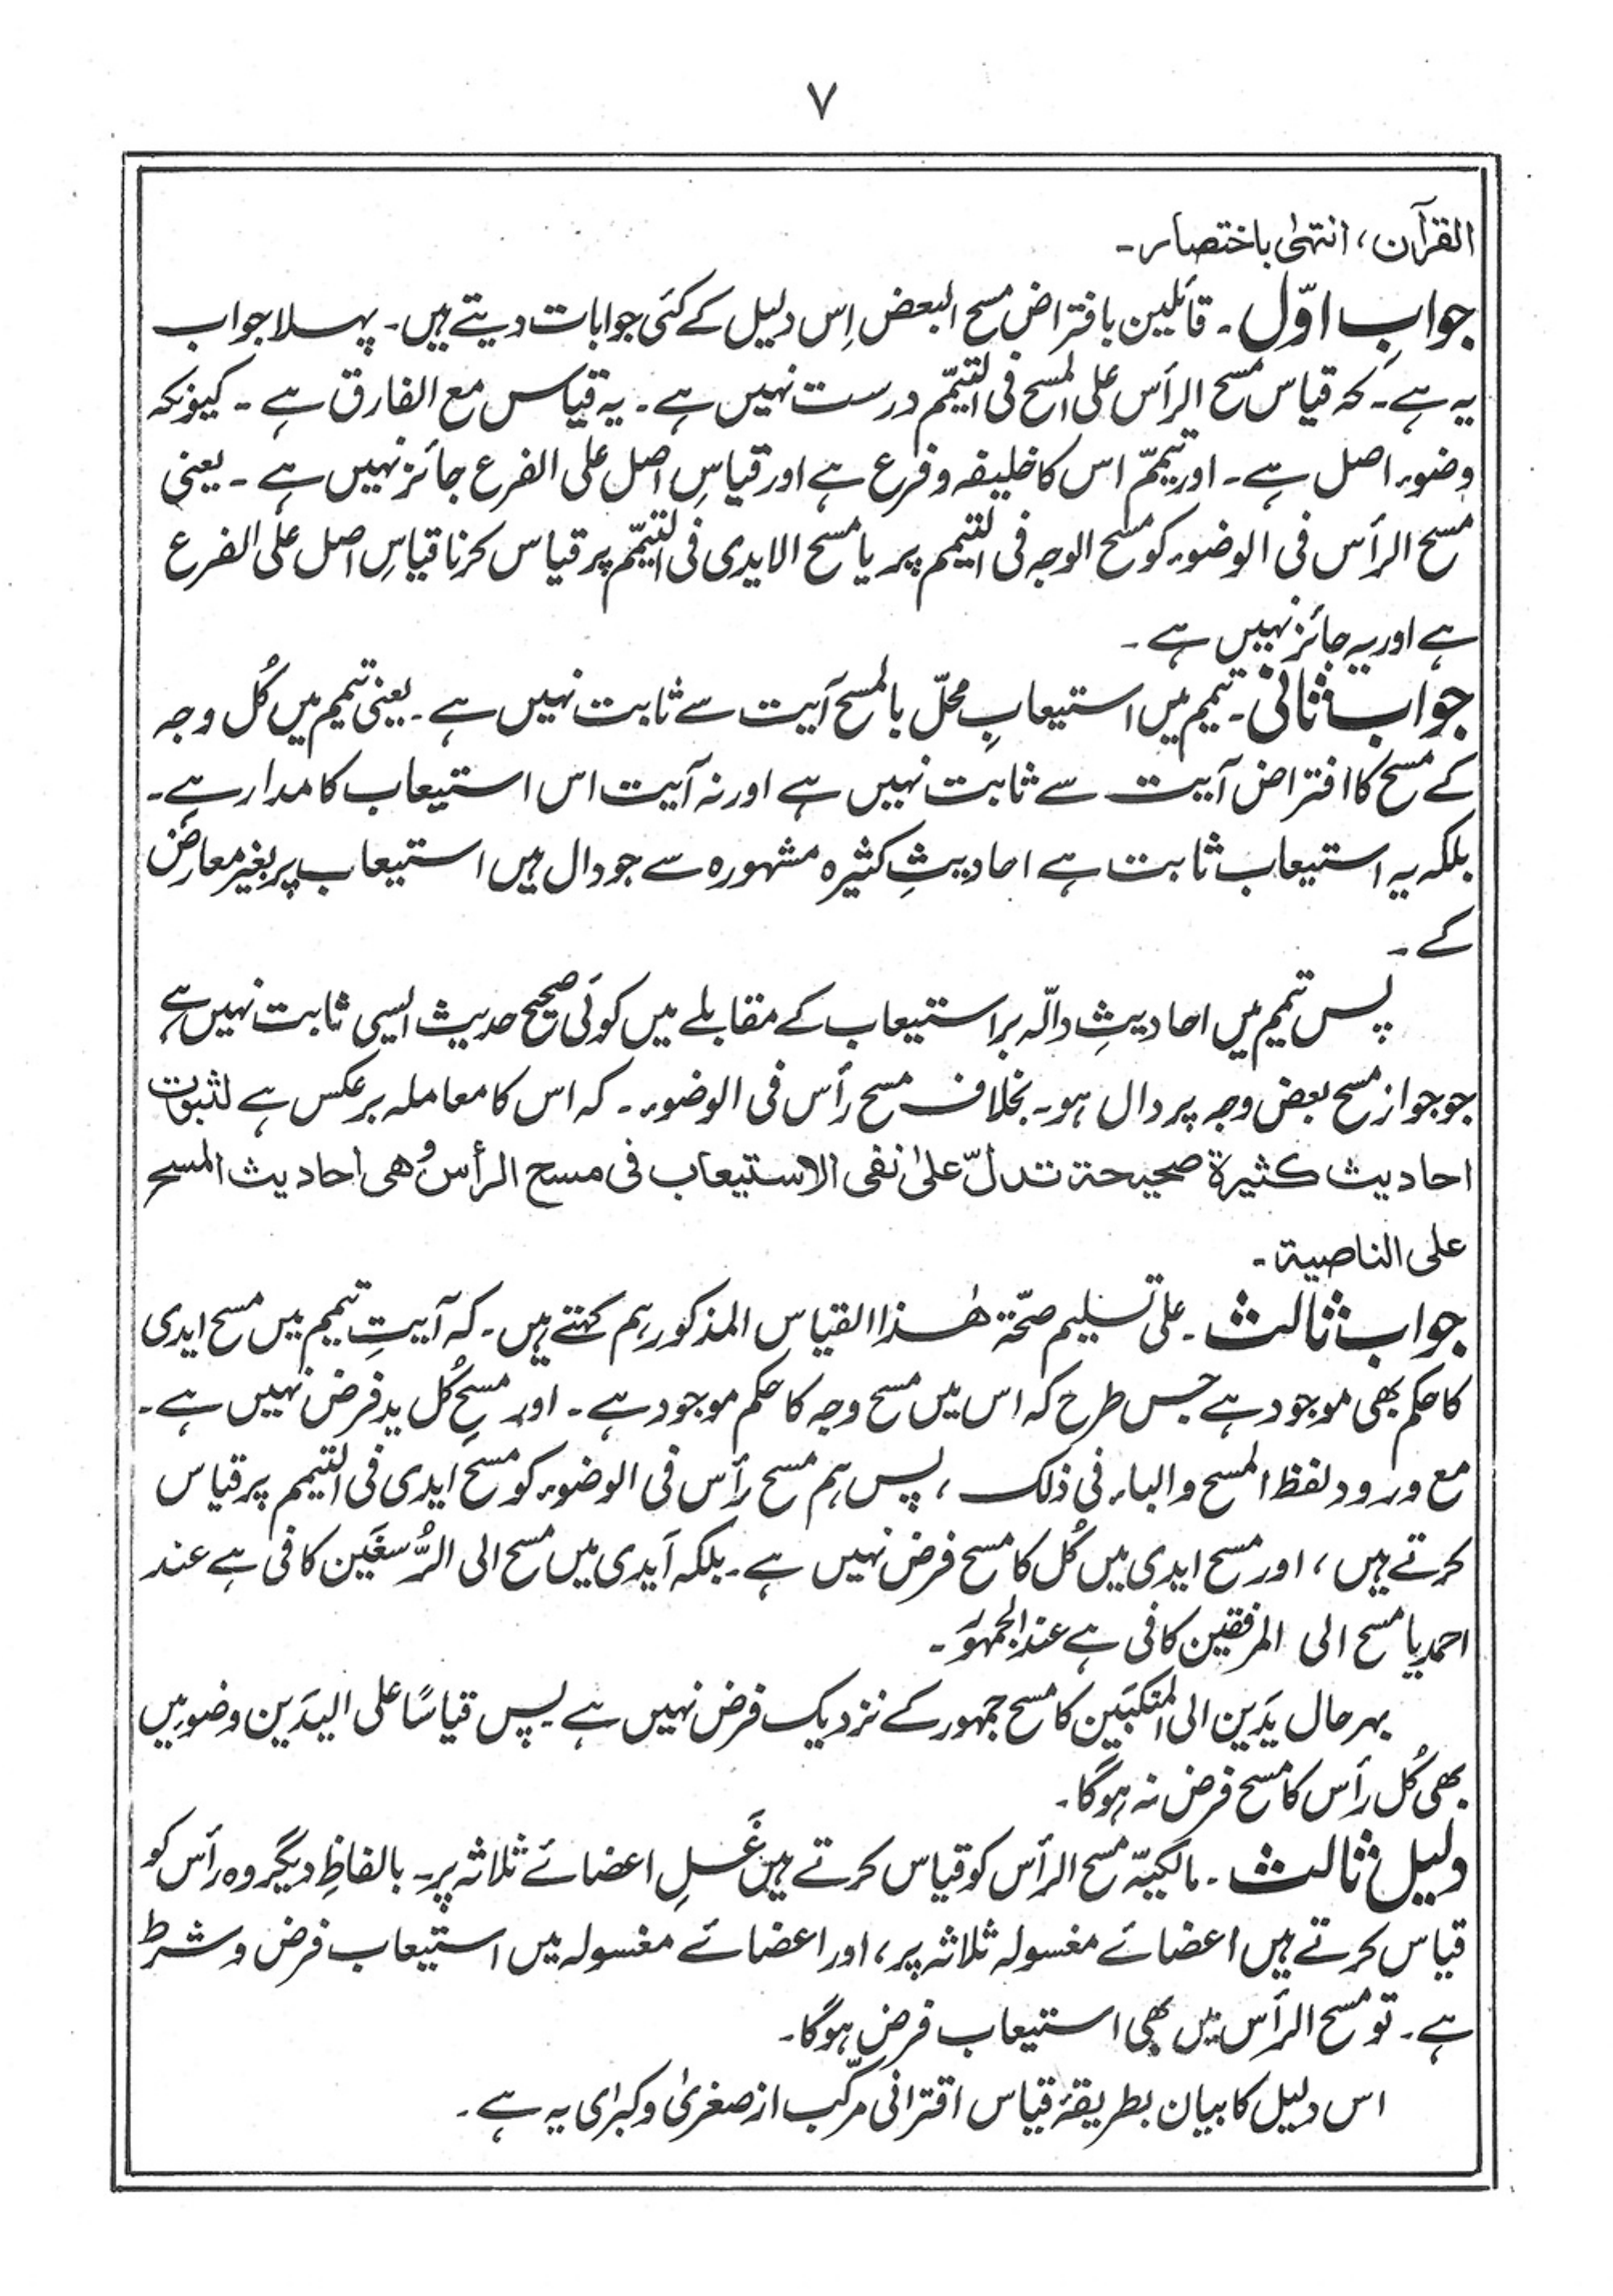 ۷
القرآن، انتہیٰ باختصار۔
جوابِ اوّل۔ قائلین بافتراض مسح البعض اِس دلیل کے کئی جوابات دیتے ہیں۔ پہلا جواب
یہ ہے۔ کہ قیاس مسح الرأس علی المسح فی التیمّم درست نہیں ہے۔ یہ قیاس مع الفارق ہے۔ کیونکہ
وضوء اصل ہے۔ اور تیممّ اس کا خلیفہ و فرع ہے اور قیاسِ اصل علی الفرع جائز نہیں ہے۔ یعنی
مسح الرأس فی الوضوء کو مسح الوجہ فی التیمم پر یا مسح الایدی فی التیمّم پر قیاس کرنا قیاسِ اصل علی الفرع
ہے اور یہ جائز نہیں ہے۔
جواب ثانی۔ تیمم میں استیعابِ محلّ بالمسح آیت سے ثابت نہیں ہے۔ یعنی تیمم میں کُل وجہ
کے مسح کا افتراض آیت سے ثابت نہیں ہے اور نہ آیت اس استیعاب کا مدار ہے۔
بلکہ یہ استیعاب ثابت ہے احادیثِ کثیرہ مشہورہ سے جو دال ہیں استیعاب پر بغیر معارض
کے۔
پس تیمم میں احادیثِ دالّہ بر استیعاب کے مقابلے میں کوئی صحیح حدیث ایسی ثابت نہیں ہے
جو جواز مسح بعض وجہ پر دال ہو۔ بخلاف مسح رأس فی الوضوء۔ کہ اس کا معاملہ برعکس ہے لثبوت
احادیث کثیرۃ صحیحۃ تدلّ علیٰ نفی الاستیعاب فی مسح الرأس وھی احادیث المسح
علی الناصیۃ۔
جواب ثالث۔ علی تسلیم صحّۃ ھٰذا القیاس المذکور ہم کہتے ہیں۔ کہ آیتِ تیمم میں مسح ایدی
کا حکم بھی موجود ہے جس طرح کہ اس میں مسح وجہ کا حکم موجود ہے۔ اور مسحِ کُل ید فرض نہیں ہے۔
مع ورود لفظ المسح والباء فی ذلک، پس ہم مسح رأس فی الوضوء کو مسح ایدی فی التیمم پر قیاس
کرتے ہیں، اور مسح ایدی میں کُل کا مسح فرض نہیں ہے۔ بلکہ آیدی میں مسح الی الرُّسغَین کافی ہے عند
احمد یا مسح الی المرفقین کافی ہے عند الجمہور۔
بہرحال یَدَین الی المنکبَین کا مسح جمہور کے نزدیک فرض نہیں ہے پس قیاسًا علی الیدَین وضوء میں
بھی کُل رأس کا مسح فرض نہ ہوگا۔
دلیل ثالث۔ مالکیہّ مسح الرأس کو قیاس کرتے ہیں غَسلِ اعضائے ثلاثہ پر۔ بالفاظِ دیگر وہ رأس کو
قیاس کرتے ہیں اعضائے مغسولہ ثلاثہ پر، اور اعضائے مغسولہ میں استیعاب فرض و شرط
ہے۔ تو مسح الرأس میں بھی استیعاب فرض ہوگا۔
اس دلیل کا بیان بطریقۂ قیاس اقترانی مرکّب از صغریٰ و کبرٰی یہ ہے۔